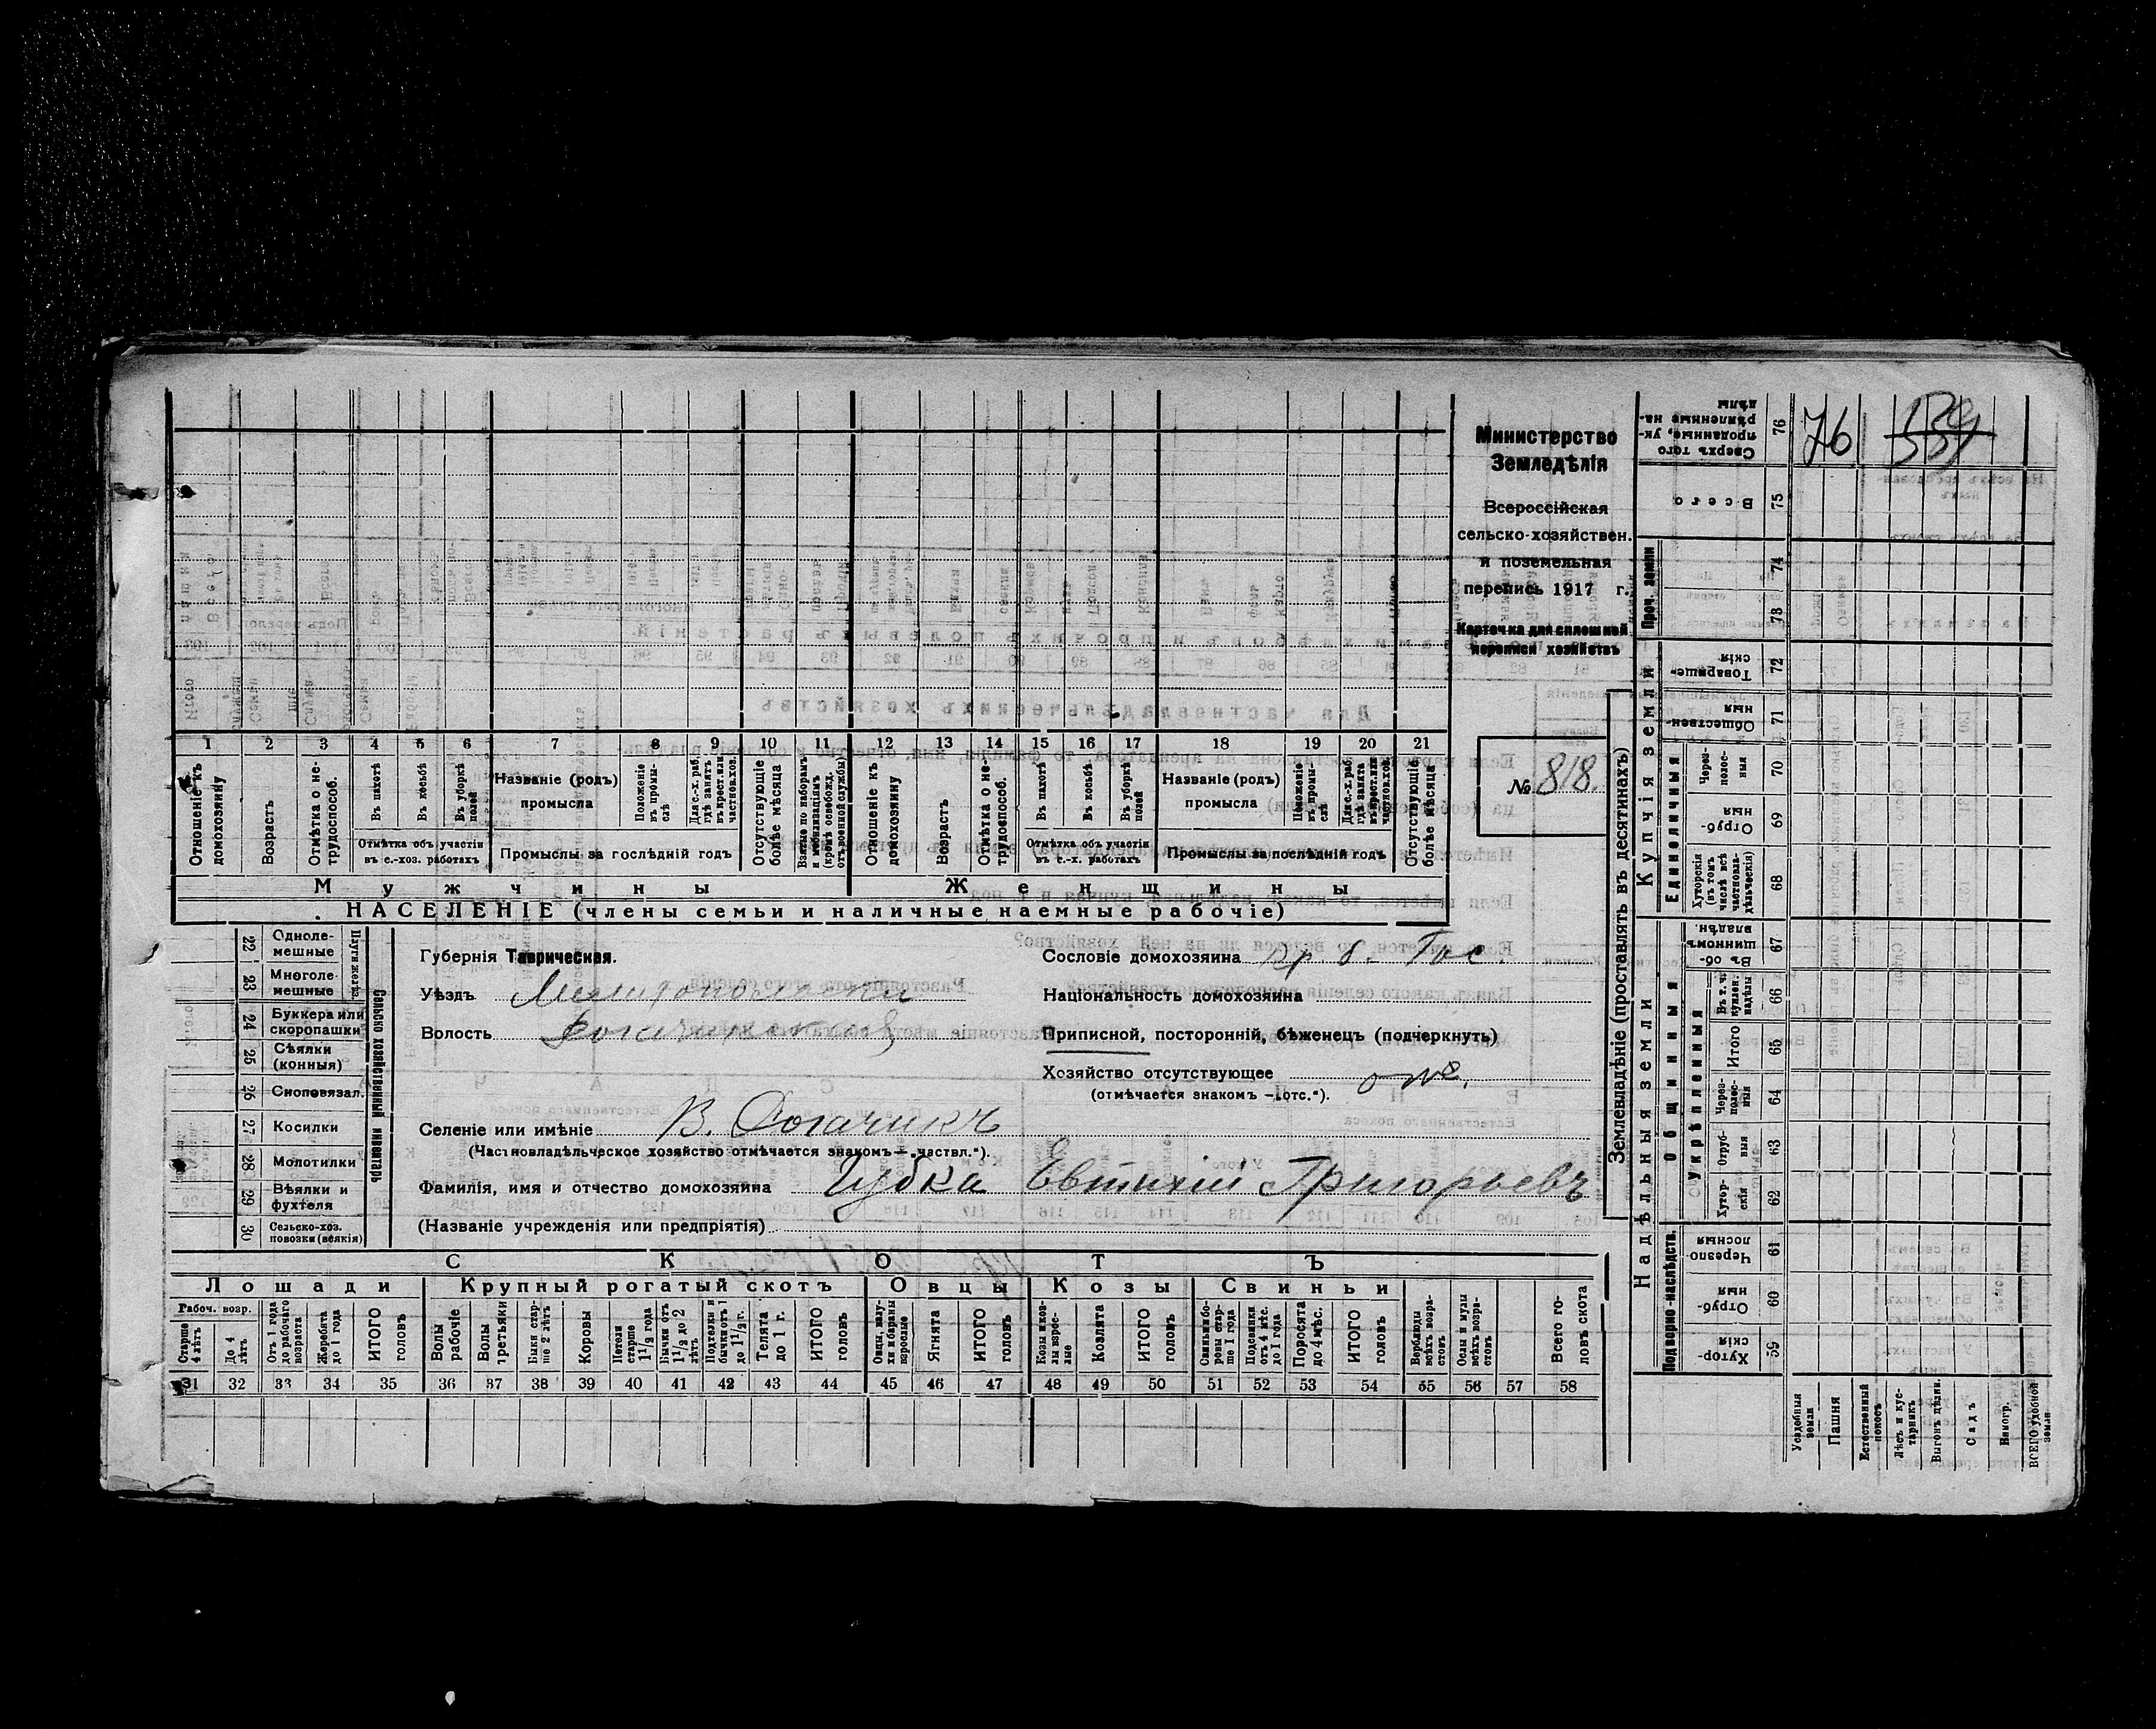 76
Министерство
Земледѣлія
Всероссійская
сельско-хозяйствен.
и поземельная
перепись 1917 г.
Карточка для сплошной
переписи хозяйствъ
№ 818.
1 2 3 4 5 6 7 8 9 10 11 12 13 14 15 16 17 18 19 20 21
Отношеніе къ домохозяину
Возрастъ
Отмѣтка о не-трудоспособ.
Въ пахотѣ
Въ косьбѣ
Въ уборкѣ полей
Отмѣтка объ участіи въ с.-хоз. работахъ
Названіе (родъ) промысла
Положеніе въ промы-слѣ
Для с.-х. раб. гдѣ занятъ въ крест. или частновл. хоз.
Промыслы за послѣдній годъ
Отсутствующіе болѣе мѣсяца
Взятые по наборамъ и мобилизаціямъ (кромѣ освобожд. отъ военной службы)
Отношеніе къ домохозяину
Возрастъ
Отмѣтка о не-трудоспособ.
Въ пахотѣ
Въ косьбѣ
Въ уборкѣ полей
Отмѣтка объ участіи въ с.-х. работахъ
Названіе (родъ) промысла
Положеніе въ промы-слѣ
Для с.-х. раб. гдѣ занята въ крест. или частнов. хоз.
Промыслы за послѣдній годъ
Отсутствующіе болѣе мѣсяца
Мужчины
Женщины
НАСЕЛЕНІЕ (члены семьи и наличные наемные рабочіе)
Сельско хозяйственный инвентарь
22 Одноле-мешные
23 Многоле-мешные
24 Буккера или скоропашки
25 Сѣялки (конныя)
26 Сноповязал.
27 Косилки
28 Молотилки
29 Вѣялки и фухтеля
30 Сельско-хоз. повозки (всякія)
Губернія Таврическая.
Уѣздъ Мелитопольски
Волость
Сословіе домохозяина кр. б. Гос.
Національность домохозяина
Приписной, посторонній, бѣженецъ (подчеркнуть)
Хозяйство отсутствующее отс.
(отмѣчается знакомъ —„отс.“).
Селеніе или имѣніе В. Рогачикъ
(Частновладѣльческое хозяйство отмѣчается знакомъ—„частвл.“).
Фамилія, имя и отчество домохозяина Губка Евтихій Григорьевъ
(Названіе учрежденія или предпріятія)
СКОТЪ
Лошади
Крупный рогатый скотъ
Овцы
Козы
Свиньи
Рабоч. возр.
Старше 4 лѣтъ
До 4 лѣтъ
Отъ 1 года до рабочаго возраста
Жеребята до 1 года
ИТОГО головъ
Волы рабочіе
Волы третьяки
Быки стар-ше 2 лѣтъ
Коровы
Нетели старше 1 1/2 года
Бычки отъ 1 1/2 до 2 лѣтъ
Подтелки и бычки отъ 1 до 1 1/2 г.
Телята до 1 г.
ИТОГО головъ
Овцы, валу-хи и бараны взрослые
Ягнята
ИТОГО головъ
Козы и коз-лы взрос-лые
Козлята
ИТОГО головъ
Свиньи бо-ровы стар-ше 1 года
Подсвинки отъ 4 мѣс. до 1 года
Поросята до 4 мѣс.
ИТОГО головъ
Верблюды всѣхъ возра-стовъ
Ослы и мулы всѣхъ возра-стовъ
Всего го-ловъ скота
31 32 33 34 35 36 37 38 39 40 41 42 43 44 45 46 47 48 49 50 51 52 53 54 55 56 57 58
Землевладѣніе (проставлять въ десятинахъ)
Надѣльныя земли
Купчія земли
Проч. земли
Подворно-наслѣдств.
Общинныя
Укрѣпленныя
Единоличныя
Сверхъ того проданные, ук-рѣпленные на-дѣлы 76
Всего 75
74
73
Товарище-скія 72
Обществен-ныя 71
Через-полос-ныя 70
Отруб-ныя 69
Хуторскія (въ томъ числѣ всѣ частновла-дѣльческія) 68
Въ об-щинномъ владѣн. 67
Въ т. ч. куплен. надѣлы 66
Итого 65
Через-полос-ныя 64
Отруб-ныя 63
Хутор-скія 62
Черезпо-лосныя 61
Отруб-ныя 60
Хутор-скія 59
Усадебныя земли
Пашня
Естественный покосъ
Лѣсъ и кус-тарникъ
Выгонъ дѣлян.
Садъ
Виногр.
ВСЕГО удобной земли